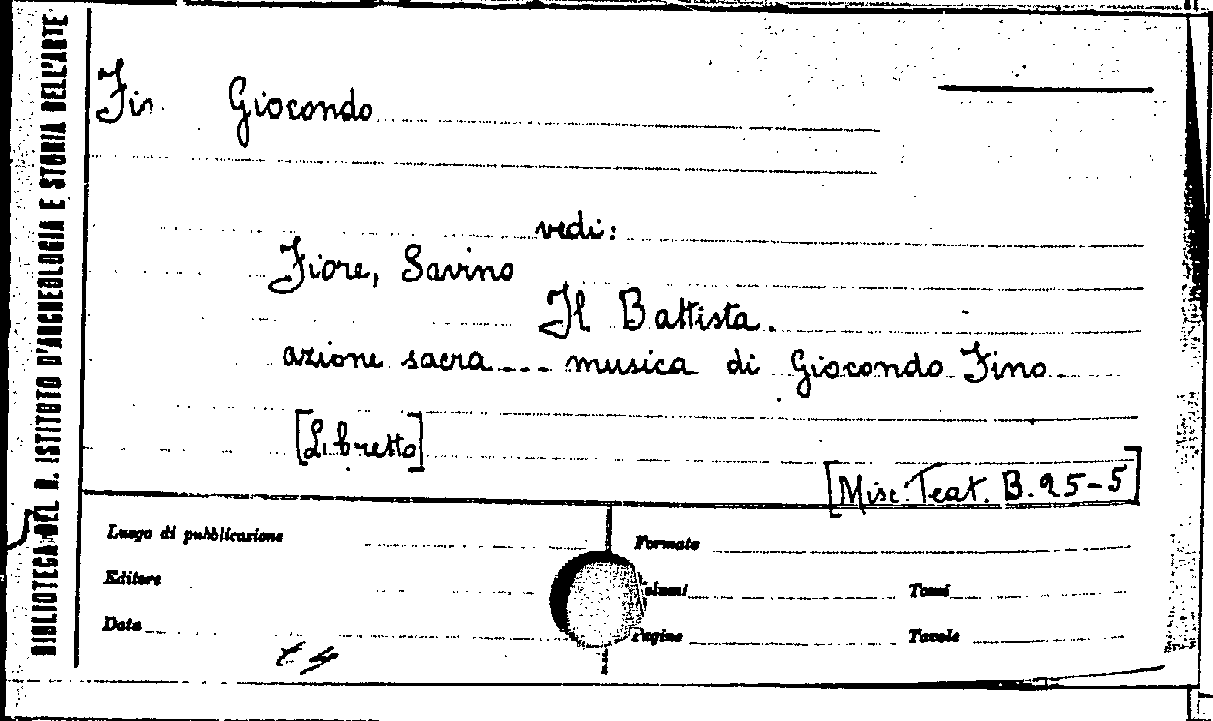 BIBLIOTECA DEL R. ISTITUTO D'ARCHEOLOGIA E STORIA DELL'ARTE
Fin Giocondo
vedi:
Fiore, Savino
Il Battista.
azione sacra --- musica di Giocondo Fino
[Libretto]
[Misc. Teat. B. 25-5]
Luogo di pubblicazione
Formato
Editore
Volumi
Tomi
Data
Pagine
Tavole